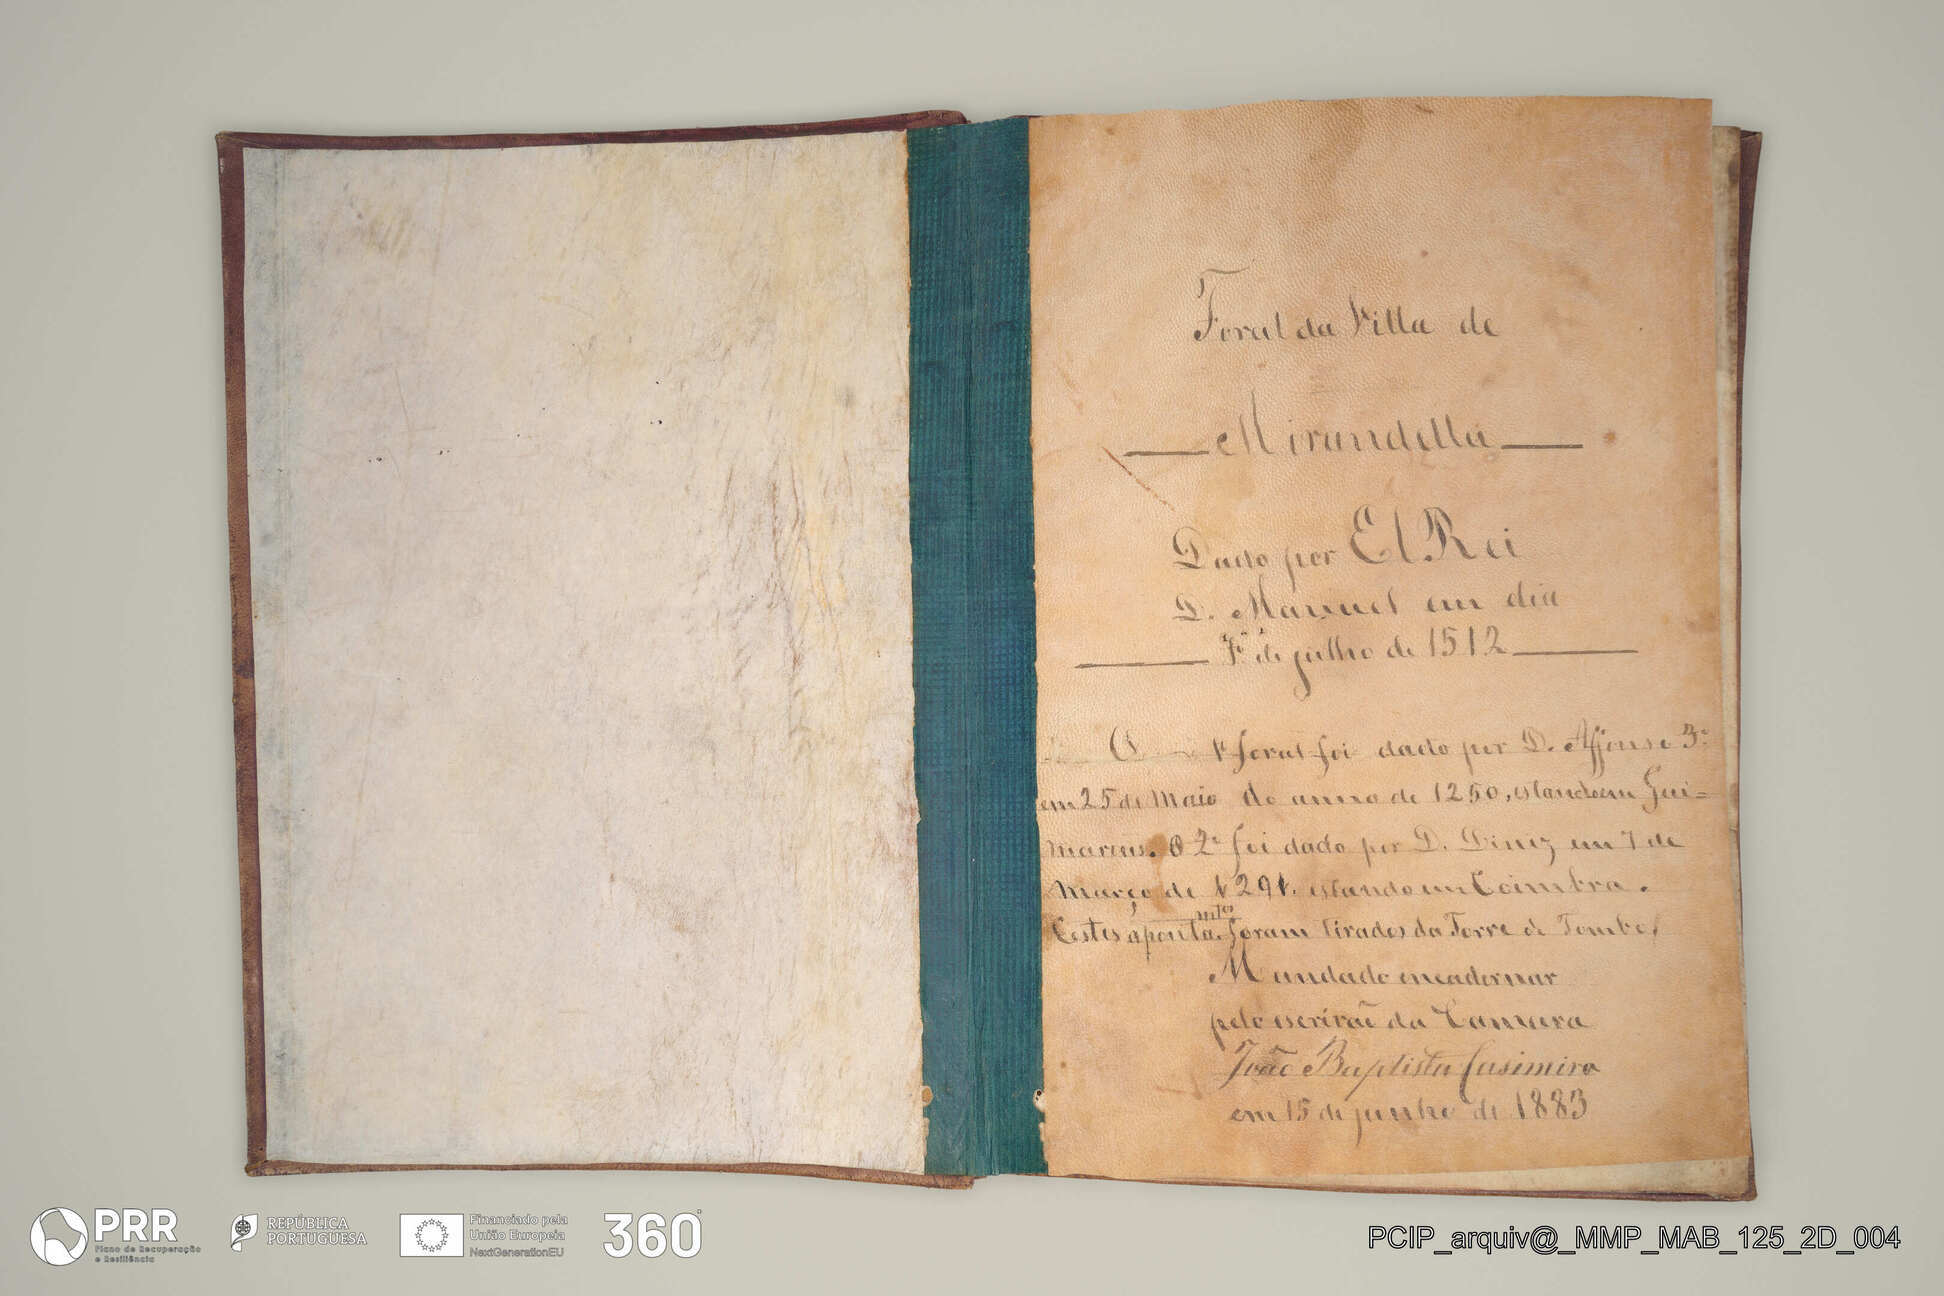 Foral da Villa de
Mirandella
Dado por El Rei
D. Manuel em dia
1º de julho de 1512
O 1º foral foi dado por D. Affonso 3º
em 25 de Maio do anno de 1250, estando em Gui=
marens. O 2º foi dado por D. Diniz em 7 de
Março de 1291. estando em Coimbra.
Estes aponta.mtos foram tirados da Torre do Tombo,
Mandado encadernar
pelo escrivão da Camara
João Baptista Casimiro
em 15 de junho de 1883
PRR
Plano de Recuperação
e Resiliência
REPÚBLICA
PORTUGUESA
Financiado pela
União Europeia
NextGenerationEU
360°
PCIP_arquiv@_MMP_MAB_125_2D_004